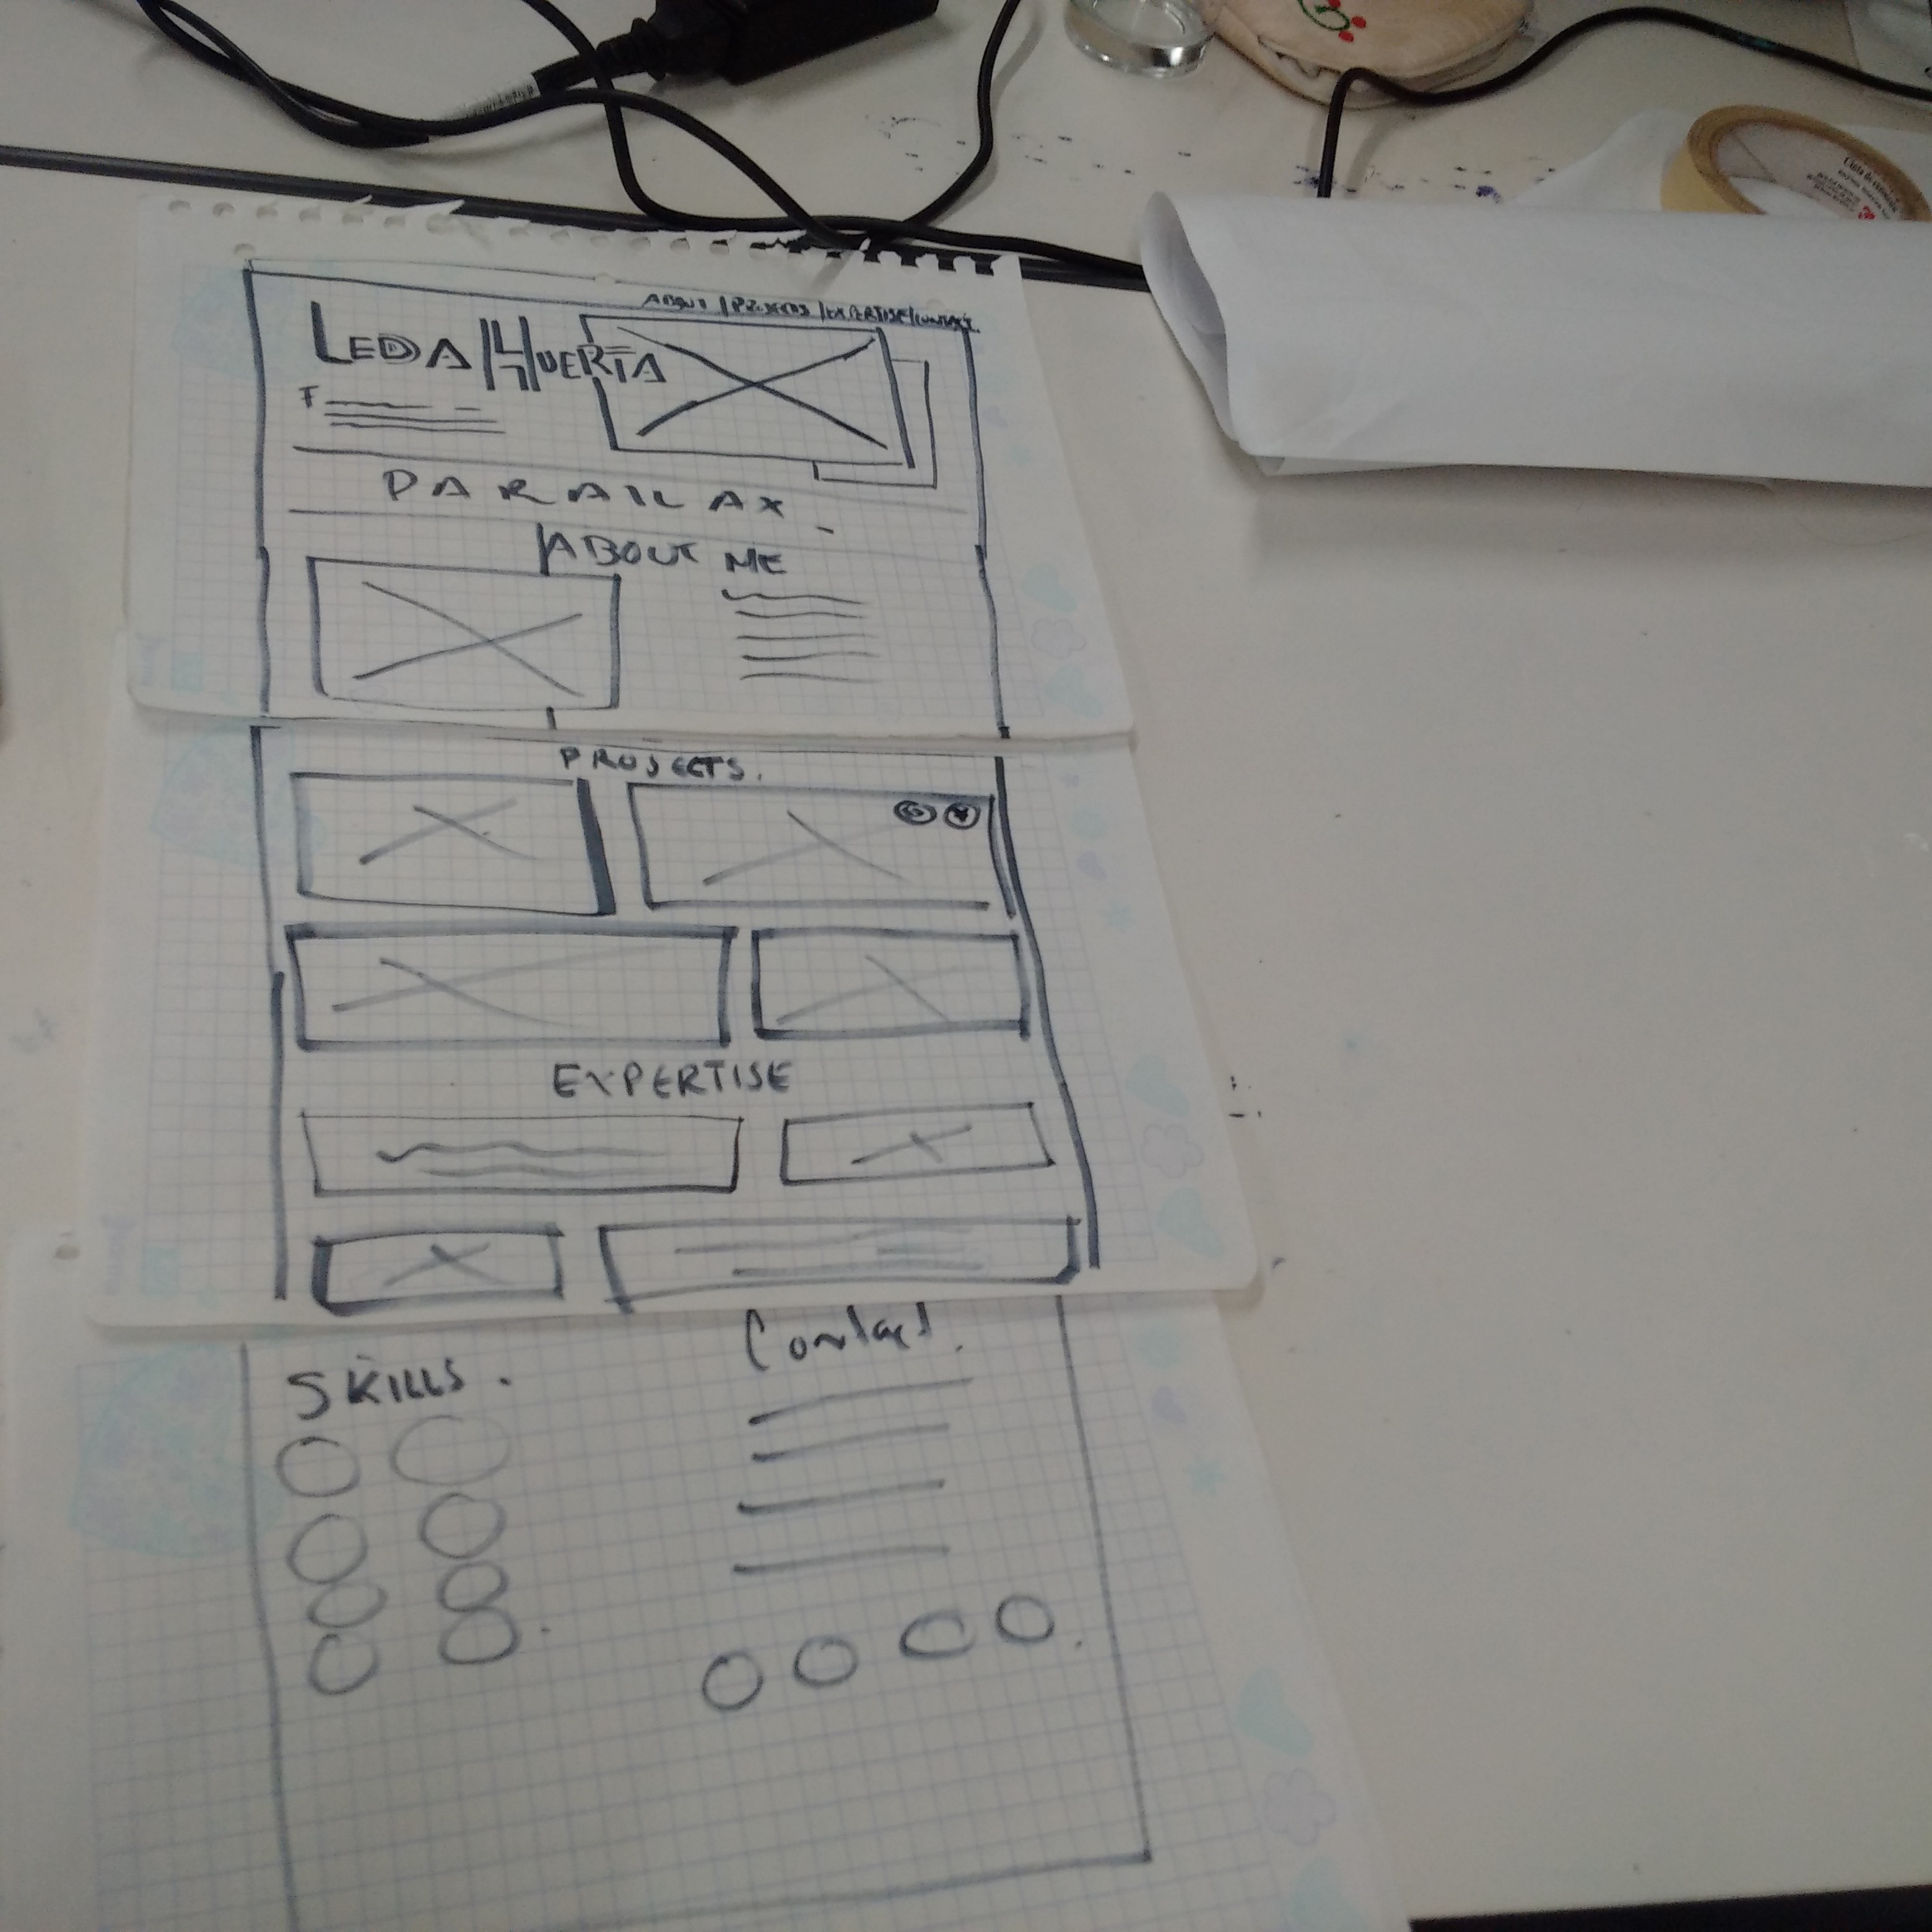 ABOUT | PROJECTS | EXPERTISE | CONTACT
LEDA HUERTA
PARALLAX
ABOUT ME
PROJECTS.
EXPERTISE
Contact.
SKILLS.